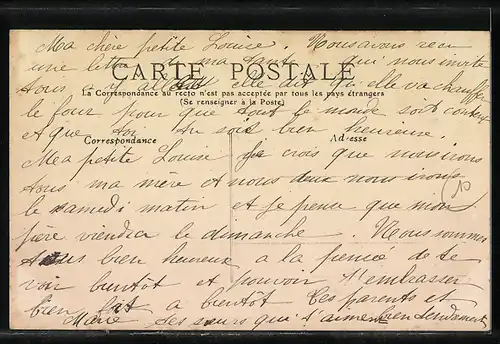 Ma chère petite Louise. Nous avons reçu
une lettre de ma tante qui nous invite
CARTE POSTALE
tous à y aller elle dit qu'elle va chauffer
La Correspondance au recto n'est pas acceptée par tous les pays étrangers
(Se renseigner à la Poste)
le four pour que tout le monde soit content
et que toi tu sois bien heureuse.
Correspondance
Adresse
Ma petite Louise je crois que nous irons
tous ma mère et nous deux nous irons
le samedi matin et je pense que mon
père viendra le dimanche. Nous sommes
tous bien heureux a la pensée de te
voir bientôt et pouvoir t'embrasser
bien fort a bientot Tes parents et
Marie tes sœurs qui t'aiment bien tendrement
10